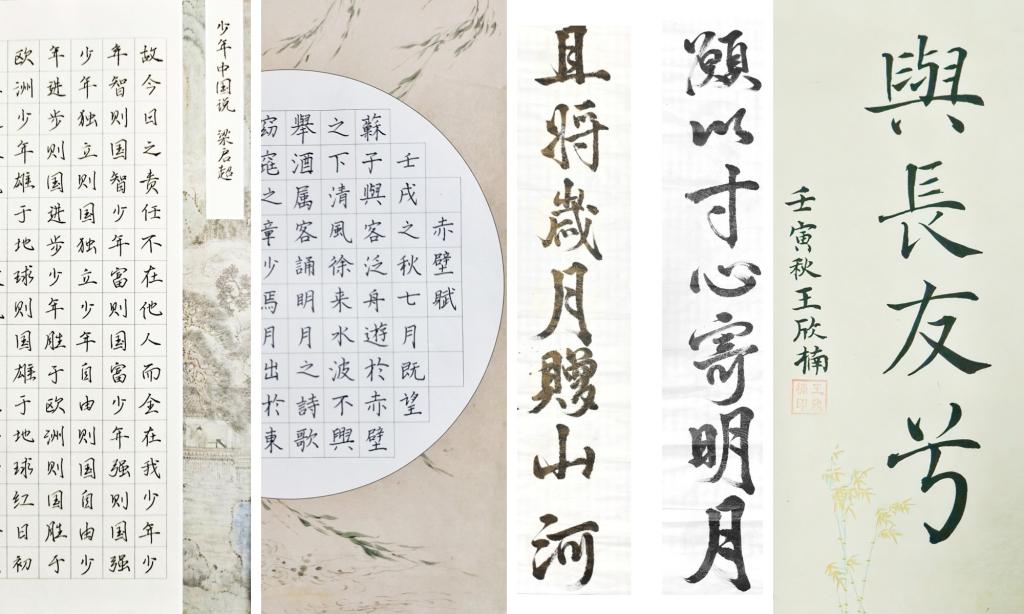 少年中国说 梁启超
故今日之责任不在他人而全在我少年少
年智则国智少年富则国富少年强则国强
少年独立则国独立少年自由则国自由少
年进步则国进步少年胜于欧洲则国胜于
欧洲少年雄于地球则国雄于地球红日初
赤壁賦
壬戌之秋七月既望
蘇子與客泛舟遊於赤壁
之下清風徐来水波不興
舉酒属客誦明月之詩歌
窈窕之章少焉月出於東
願以寸心寄明月
且将歲月贈山河
與長友兮
壬寅秋王欣楠
王欣楠印